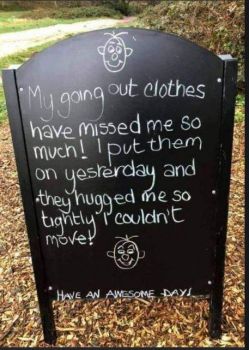 My going out clothes
have missed me so
much! I put them
on yesterday and
they hugged me so
tightly I couldn't
move!
HAVE AN AWESOME DAY!